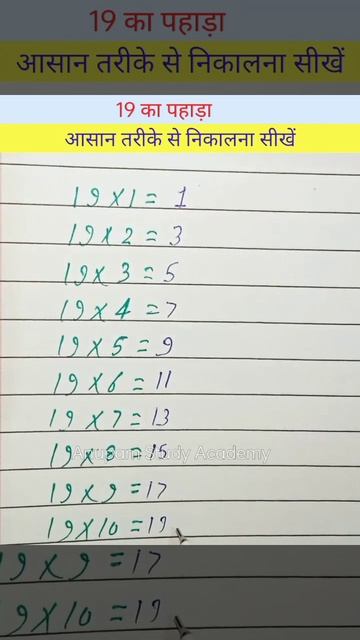 19 का पहाड़ा
आसान तरीके से निकालना सीखें
19 का पहाड़ा
आसान तरीके से निकालना सीखें
19 x 1 = 1
19 x 2 = 3
19 x 3 = 5
19 x 4 = 7
19 x 5 = 9
19 x 6 = 11
19 x 7 = 13
19 x 8 = 15
Anupam Study Academy
19 x 9 = 17
19 x 10 = 19
19 x 9 = 17
19 x 10 = 19